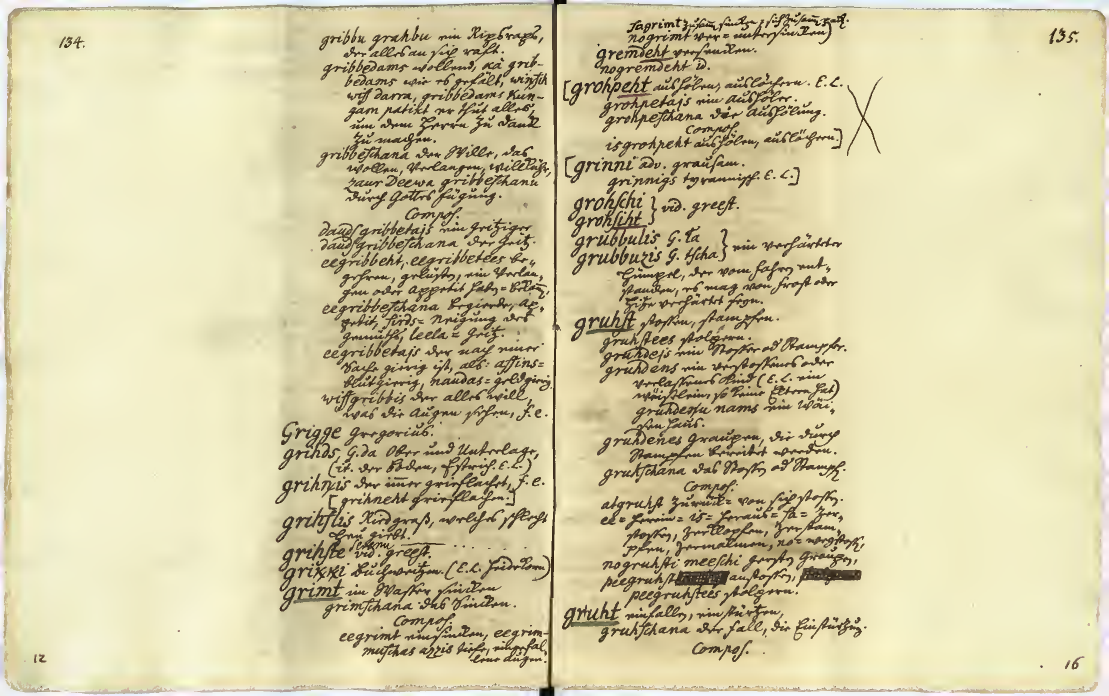 134.
gribbu grahbu ein Ripsraps,
der alles an sich raft.
gribbedams wollend, kà grib-
bedams wie es gefält, winsch
wiss darra, gribbedams Kun-
gam patikt er thut alles,
um dem Herrn zu Danck
zu machen.
gribbeschana der Wille, das
wollen, Verlangen, willkühr,
zaur Deewa gribbeschanu
durch Gottes fügung.
Compos.
daudsgribbetajs ein geitziger
daudsgribbeschana der Geitz.
eegribbeht, eegribbetees be-
gehren, gelüsten, ein Verlan-
gen oder Appetit haben
eegribbeschana begierde, Ap-
petit, sirds= Neigung des
gemüths, leela= Geitz.
eegribbetajs der nach einer
Sache gierig ist, als: assins=
blutgierig, naudas= geldgierig
wissgribbis der alles will,
was die Augen sehen, f. e.
Grigge Gregorius.
grihds G. da Ober und Unterlage,
(it. der Boden, Estrich. E. L.)
grihnis der immer grieflachet, f. e.
[grihneht grieflachen.]
grihslis Riedgraß, welches schlecht
Heu giebt.
grihste vid. greest.
grikki Buchweitzen. (E. L. Heidekorn)
grimt im Wasser sincken
grimschana das Sincken.
Compos.
eegrimt einsincken, eegrim-
muschas azzis tiefe, eingefal-
lene Augen.
12
135.
sagrimt zusam sincken, sich zusam
nogrimt ver= untersincken)
gremdeht versencken.
nogremdeht id.
[grohpeht aushölen, auslöchern. E. L.
grohpetajs ein Aushöler.
grohpeschana die Aushölung.
Compos.
isgrohpeht aushölen, auslöchern.]
[grinni adv. grausam.
grinnigs tyrannisch. E. L.]
grohschi } vid. greest.
grohsiht
grubbulis G. ļa } ein verhärteter
grubbuzis G. tscha
Hümpel, der vom fahren ent-
standen, es mag von Frost oder
Hitze verhärtet seyn.
gruhst stossen, stampfen.
gruhstees stolpern.
gruhdejs ein Stosser od Stampfer.
gruhdens ein verstossenes oder
verlassenes Kind (E. L. ein
wäiselein, so keine Eltern hat)
gruhdenu nams ein Wäi-
senhaus.
gruhdenes Graupen, die durch
Stampfen bereitet werden.
gruhschana das Stossen od Stampf.
Compos.
atgruhst zurück= von sich stossen.
ee= herein= is= heraus= sa= zer-
stossen, zerklopfen, zerstam-
pfen, zermalmen, no= wegstoss
nogruhsti meeschi gersten Graupen,
peegruhst anstossen,
peegruhstees stolpern.
gruht einfallen, einstürtzen,
gruhschana der fall, die Einstürtzung.
Compos.
16